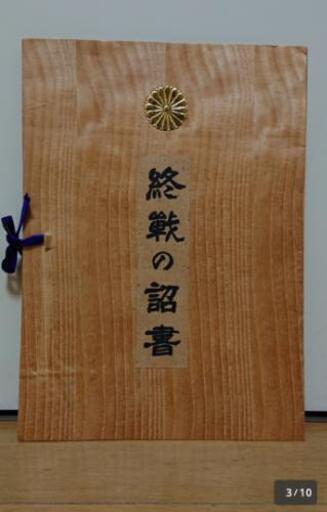 終戰の詔書
3/10